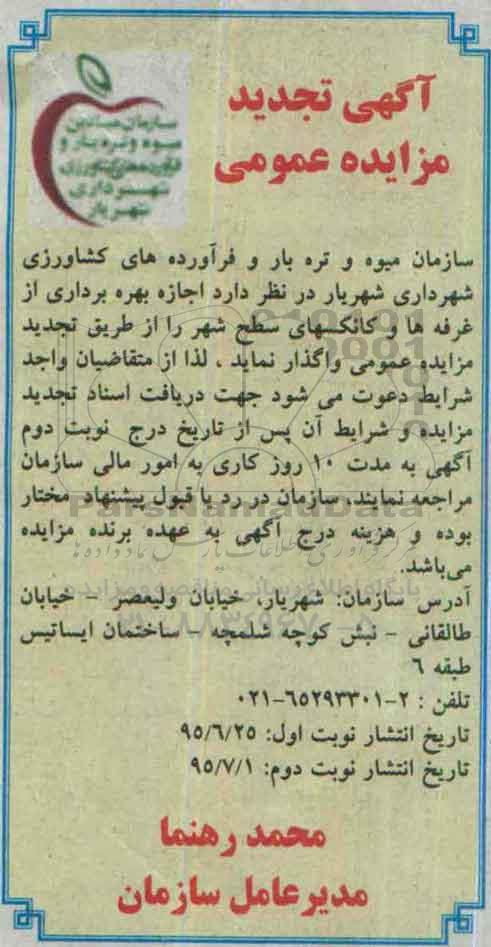 آگهی تجدید
مزایده عمومی
سازمان میادین
میوه و تره بار و
فرآورده‌های کشاورزی
شهرداری
شهریار
سازمان میوه و تره بار و فرآورده های کشاورزی
شهرداری شهریار در نظر دارد اجازه بهره برداری از
غرفه ها و کانکسهای سطح شهر را از طریق تجدید
مزایده عمومی واگذار نماید ، لذا از متقاضیان واجد
شرایط دعوت می شود جهت دریافت اسناد تجدید
مزایده و شرایط آن پس از تاریخ درج نوبت دوم
آگهی به مدت ۱۰ روز کاری به امور مالی سازمان
مراجعه نمایند، سازمان در رد یا قبول پیشنهاد مختار
بوده و هزینه درج آگهی به عهده برنده مزایده
می‌باشد.
آدرس سازمان: شهریار، خیابان ولیعصر – خیابان
طالقانی – نبش کوچه شلمچه – ساختمان ایساتیس
طبقه ۶
تلفن : ۲-۶۵۲۹۳۳۰۱-۰۲۱
تاریخ انتشار نوبت اول: ۹۵/۶/۲۵
تاریخ انتشار نوبت دوم: ۹۵/۷/۱
محمد رهنما
مدیرعامل سازمان
ParsNamadData